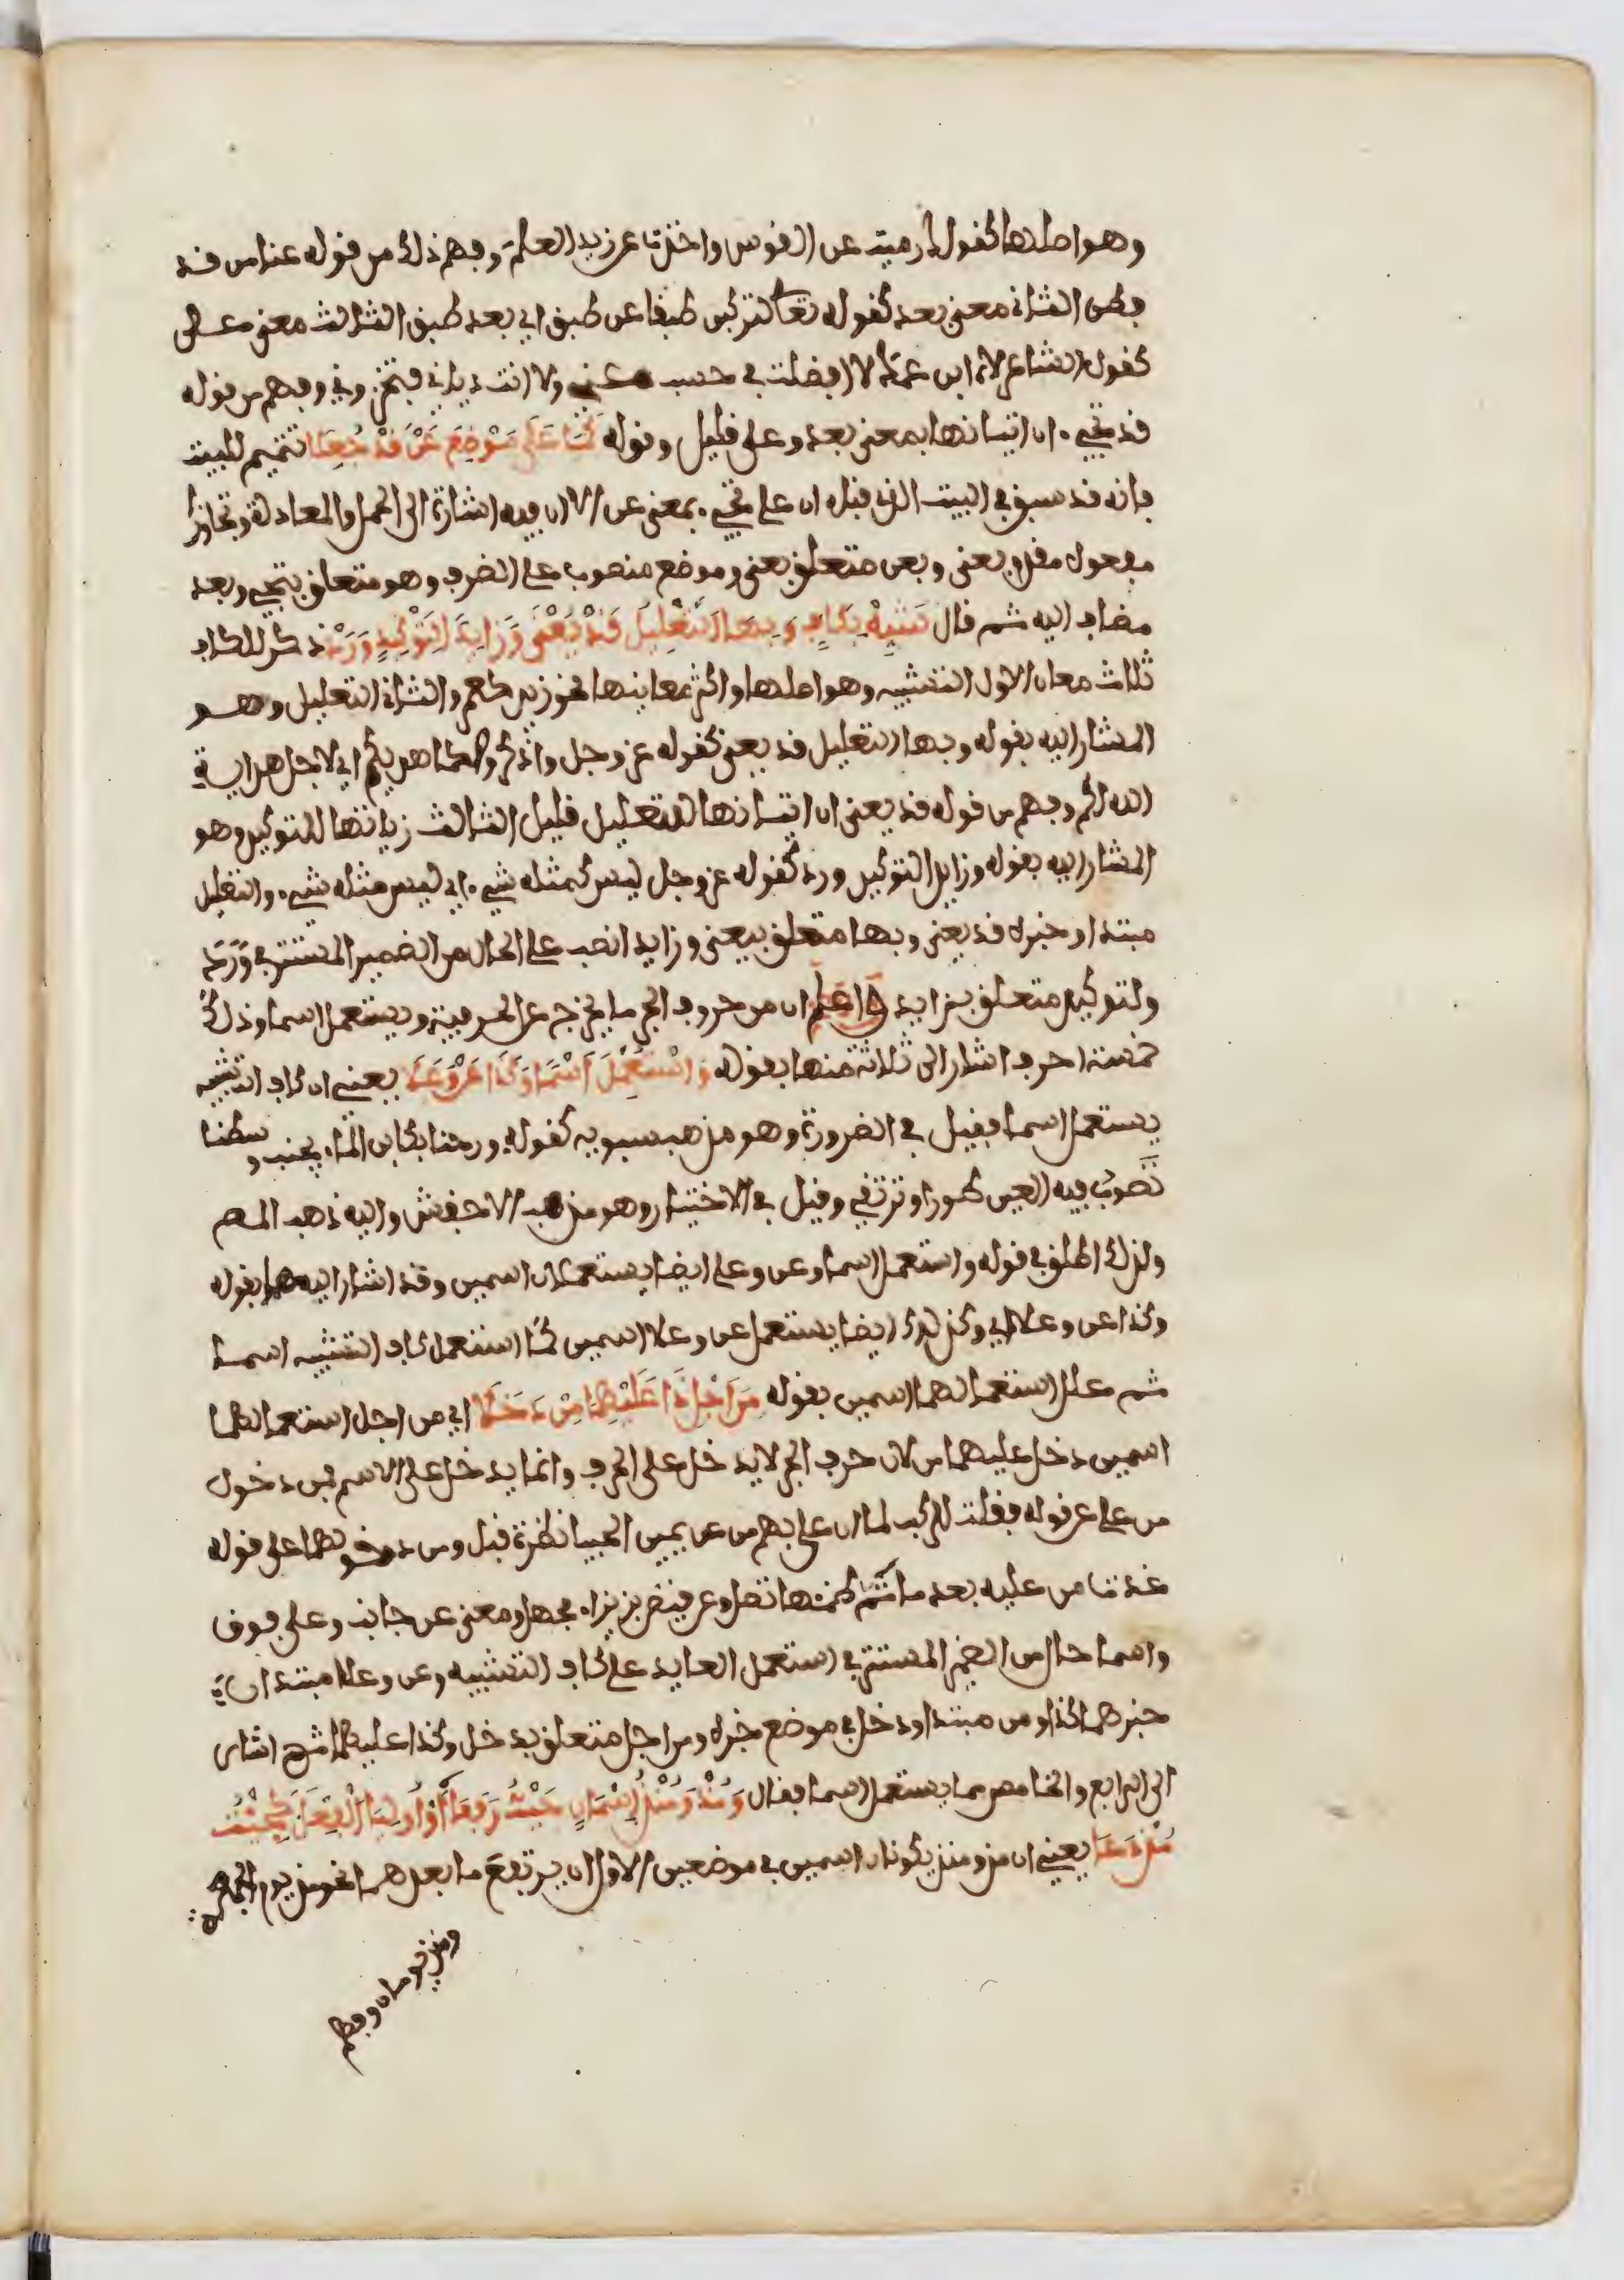 وهو اصلها كقولك رميت عن القوس واخذت عن زيد العلم وفهم ذلك من قوله عنا من قد
فطن الثاني معنى بعد كقوله تعالى لتركبن طبقا عن طبق اي بعد طبق الثالث معنى على
كقول الشاعر لاه ابن عمك لا افضلت في حسب عني ولا انت دياني فتخزوني وفهم من قوله
قد تجيء ان اتيانها بمعنى بعد وعلى قليل وقوله كما على موضع عن قد جعلا تتميم للبيت
فانه قد سبق في البيت الذي قبله ان على تجيء بمعنى عن الا ان فيه اشارة الى الحمل والمعادلة وتجاوزا
مفعول مقدم بعنى وبعن متعلق بعنى وموضع منصوب على الظرف وهو متعلق بتجيء وبعد
مضاف اليه ثم قال شبه بكاف وبها التعليل قد يعنى وزايدا لتوكيد ورد ذكر للكاف
ثلاث معان الاول التشبيه وهو اصلها واكثر معانيها نحو زيد كعمرو الثاني التعليل وهو
المشار اليه بقوله وبها التعليل قد يعنى كقوله عز وجل واذكروه كما هديكم اي لاجل هداية
الله لكم وفهم من قوله قد يعنى ان اتيانها للتعليل قليل الثالث زيادتها للتوكيد وهو
المشار اليه بقوله وزايدا لتوكيد ورد كقوله عز وجل ليس كمثله شيء اي ليس مثله شيء والتعليل
مبتدا وخبره قد يعنى وبها متعلق بيعنى وزايدا نصب على الحال من الضمير المستتر في ورد
ولتوكيد متعلق بزايد واعلم ان من حروف الجر ما يخرج عن الحرفية ويستعمل اسما وذلك
خمسة احرف اشار الى ثلاثة منها بقوله واستعمل اسما وكذا عن وعلى يعني ان كاف التشبيه
يستعمل اسما فقيل في الضرورة وهو مذهب سيبويه كقوله ورحنا بكابن الماء يجنب وسطنا
تصوب فيه العين طورا وترتقي وقيل في الاختيار وهو مذهب الاخفش واليه ذهب المصم
ولذلك اطلق في قوله واستعمل اسما وعن وعلى ايضا يستعملان اسمين وقد اشار اليهما بقوله
وكذا عن وعلا اي وكذلك ايضا يستعمل عن وعلا اسمين كما استعمل كاف التشبيه اسما
ثم علل استعمالهما اسمين بقوله من اجل ذا عليهما من دخلا اي من اجل استعمالهما
اسمين دخل عليهما من لان حرف الجر لا يدخل على الحرف وانما يدخل على الاسم فمن دخول
من على عن قوله فقلت للركب لما ان علا بهم من عن يمين الحبيا نظرة قبل ومن دخولها على قوله
غدت من عليه بعد ما تم ظمؤها تصل وعن قيض بزيزاء مجهل ومعنى عن جانب وعلى فوق
واسما حال من الضمير المستتر في استعمل العايد على كاف التشبيه وعن وعلا مبتدان
خبرهما كذا ومن مبتدا ودخل في موضع خبره ومن اجل متعلق بدخل وكذا عليهما ثم اشار
الى الرابع والخامس مما يستعمل اسما فقال ومذ ومنذ اسمان حيث رفعا او اوليا الفعل كجئت
مذ دعا يعني ان مذ ومنذ يكونان اسمين في موضعين الاول ان يرتفع ما بعدهما نحو مذ يوم الجمعة
ومذ يومان وفهم